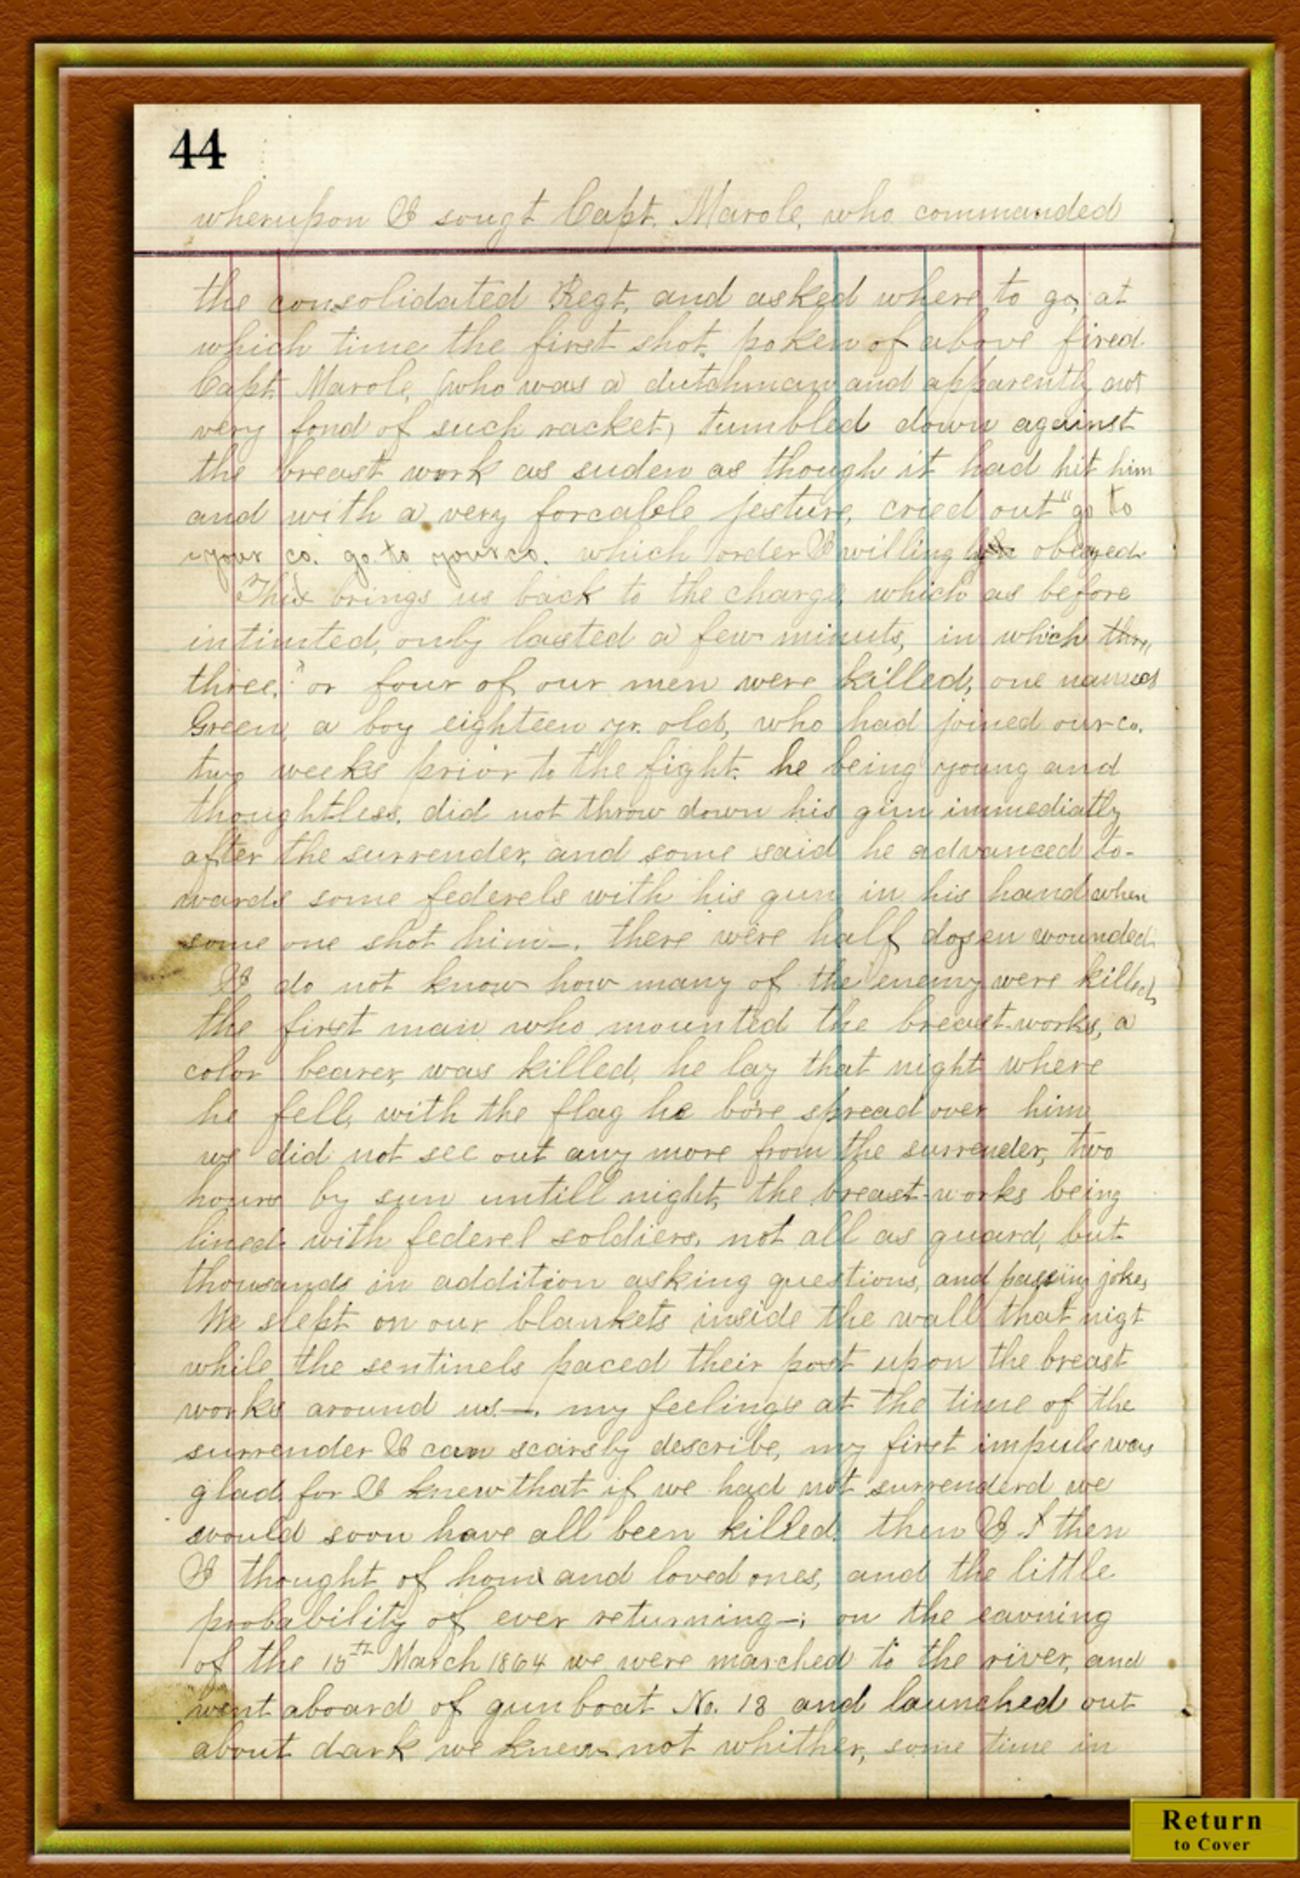 44
wherupon I sougt Capt. Marole, who commanded
the consolidated Regt, and asked where to go, at
which time the first shot, poken of above fired.
Capt. Marole, (who was a dutchman and apparently not
very fond of such racket) tumbled down against
the breast work as suden as though it had hit him
and with a very forcable jesture, cried out "go to
your co. go to your co. which order I willing obeyed.
This brings us back to the charge, which as before
intimted, only lasted a few minuts, in which thre,,
three," or four of our men were killed, one named
Green, a boy eighteen yr. old, who had joined our co.
two weeks prior to the fight. he being young and
thoughtless, did not throw down his gun immediatly
after the surrender, and some said he advanced to-
wards some federels with his gun in his hand when
some one shot him—. there were half dozen wounded.
I do not know how many of the enemy were killed,
the first man who mounted the breast-works, a
color bearer, was killed, he lay that night where
he fell, with the flag he bore spread over him
we did not see out any more from the surrender, two
hours by sun untill night, the breast-works being
lined with federel soldiers, not all as guard, but
thousands in addition asking questions, and passing jokes,
We slept on our blankets inside the wall that nigt
while the sentinels paced their post upon the breast
works around us—. my feelings at the time of the
surrender I can scarsly describe, my first impuls was
glad, for I knew that if we had not surrenderd we
would soon have all been killed. then I I then
I thought of home and loved ones, and the little
probability of ever returning—; on the eavning
of the 15th March 1864 we were marched to the river, and
went aboard of gunboat No. 13 and launched out
about dark we knew not whither, some time in
Return
to Cover